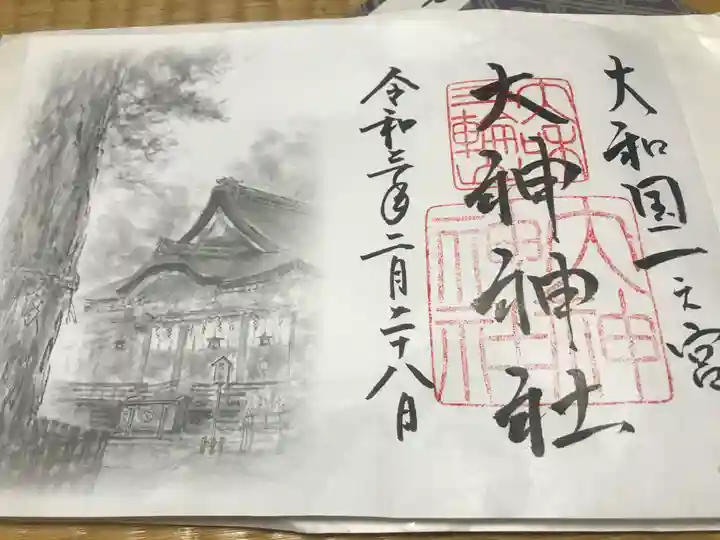 大和国一之宮
大神神社
令和三年二月二十八日
三輪
大神
神社